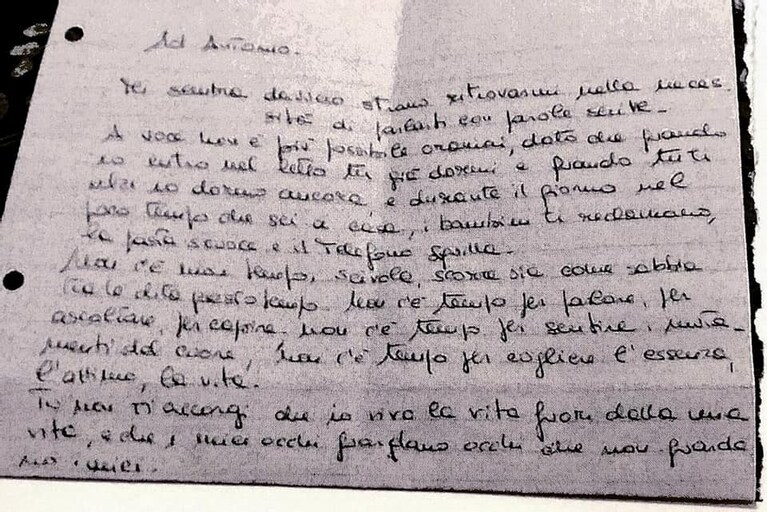 Ad Antonio.
Mi sembra davvero strano ritrovarmi nella neces
sità di parlarti con parole scritte -
A voce non è più possibile oramai, dato che quando
io entro nel letto tu già dormi e quando tu ti
alzi io dormo ancora e durante il giorno nel
poco tempo che sei a casa, i bambini ti reclamano,
la pasta scuoce e il telefono squilla -
Non c'è mai tempo, scivola, scorre via come sabbia
tra le dita questo tempo. Non c'è tempo per parlare, per
ascoltare, per capire - non c'è tempo per sentire i muta-
menti del cuore, non c'è tempo per cogliere l'essenza,
l'attimo, la vita.
Tu non ti accorgi che io vivo la vita fuori dalla mia
vita, e che i miei occhi guardano occhi che non guarda
no i miei.